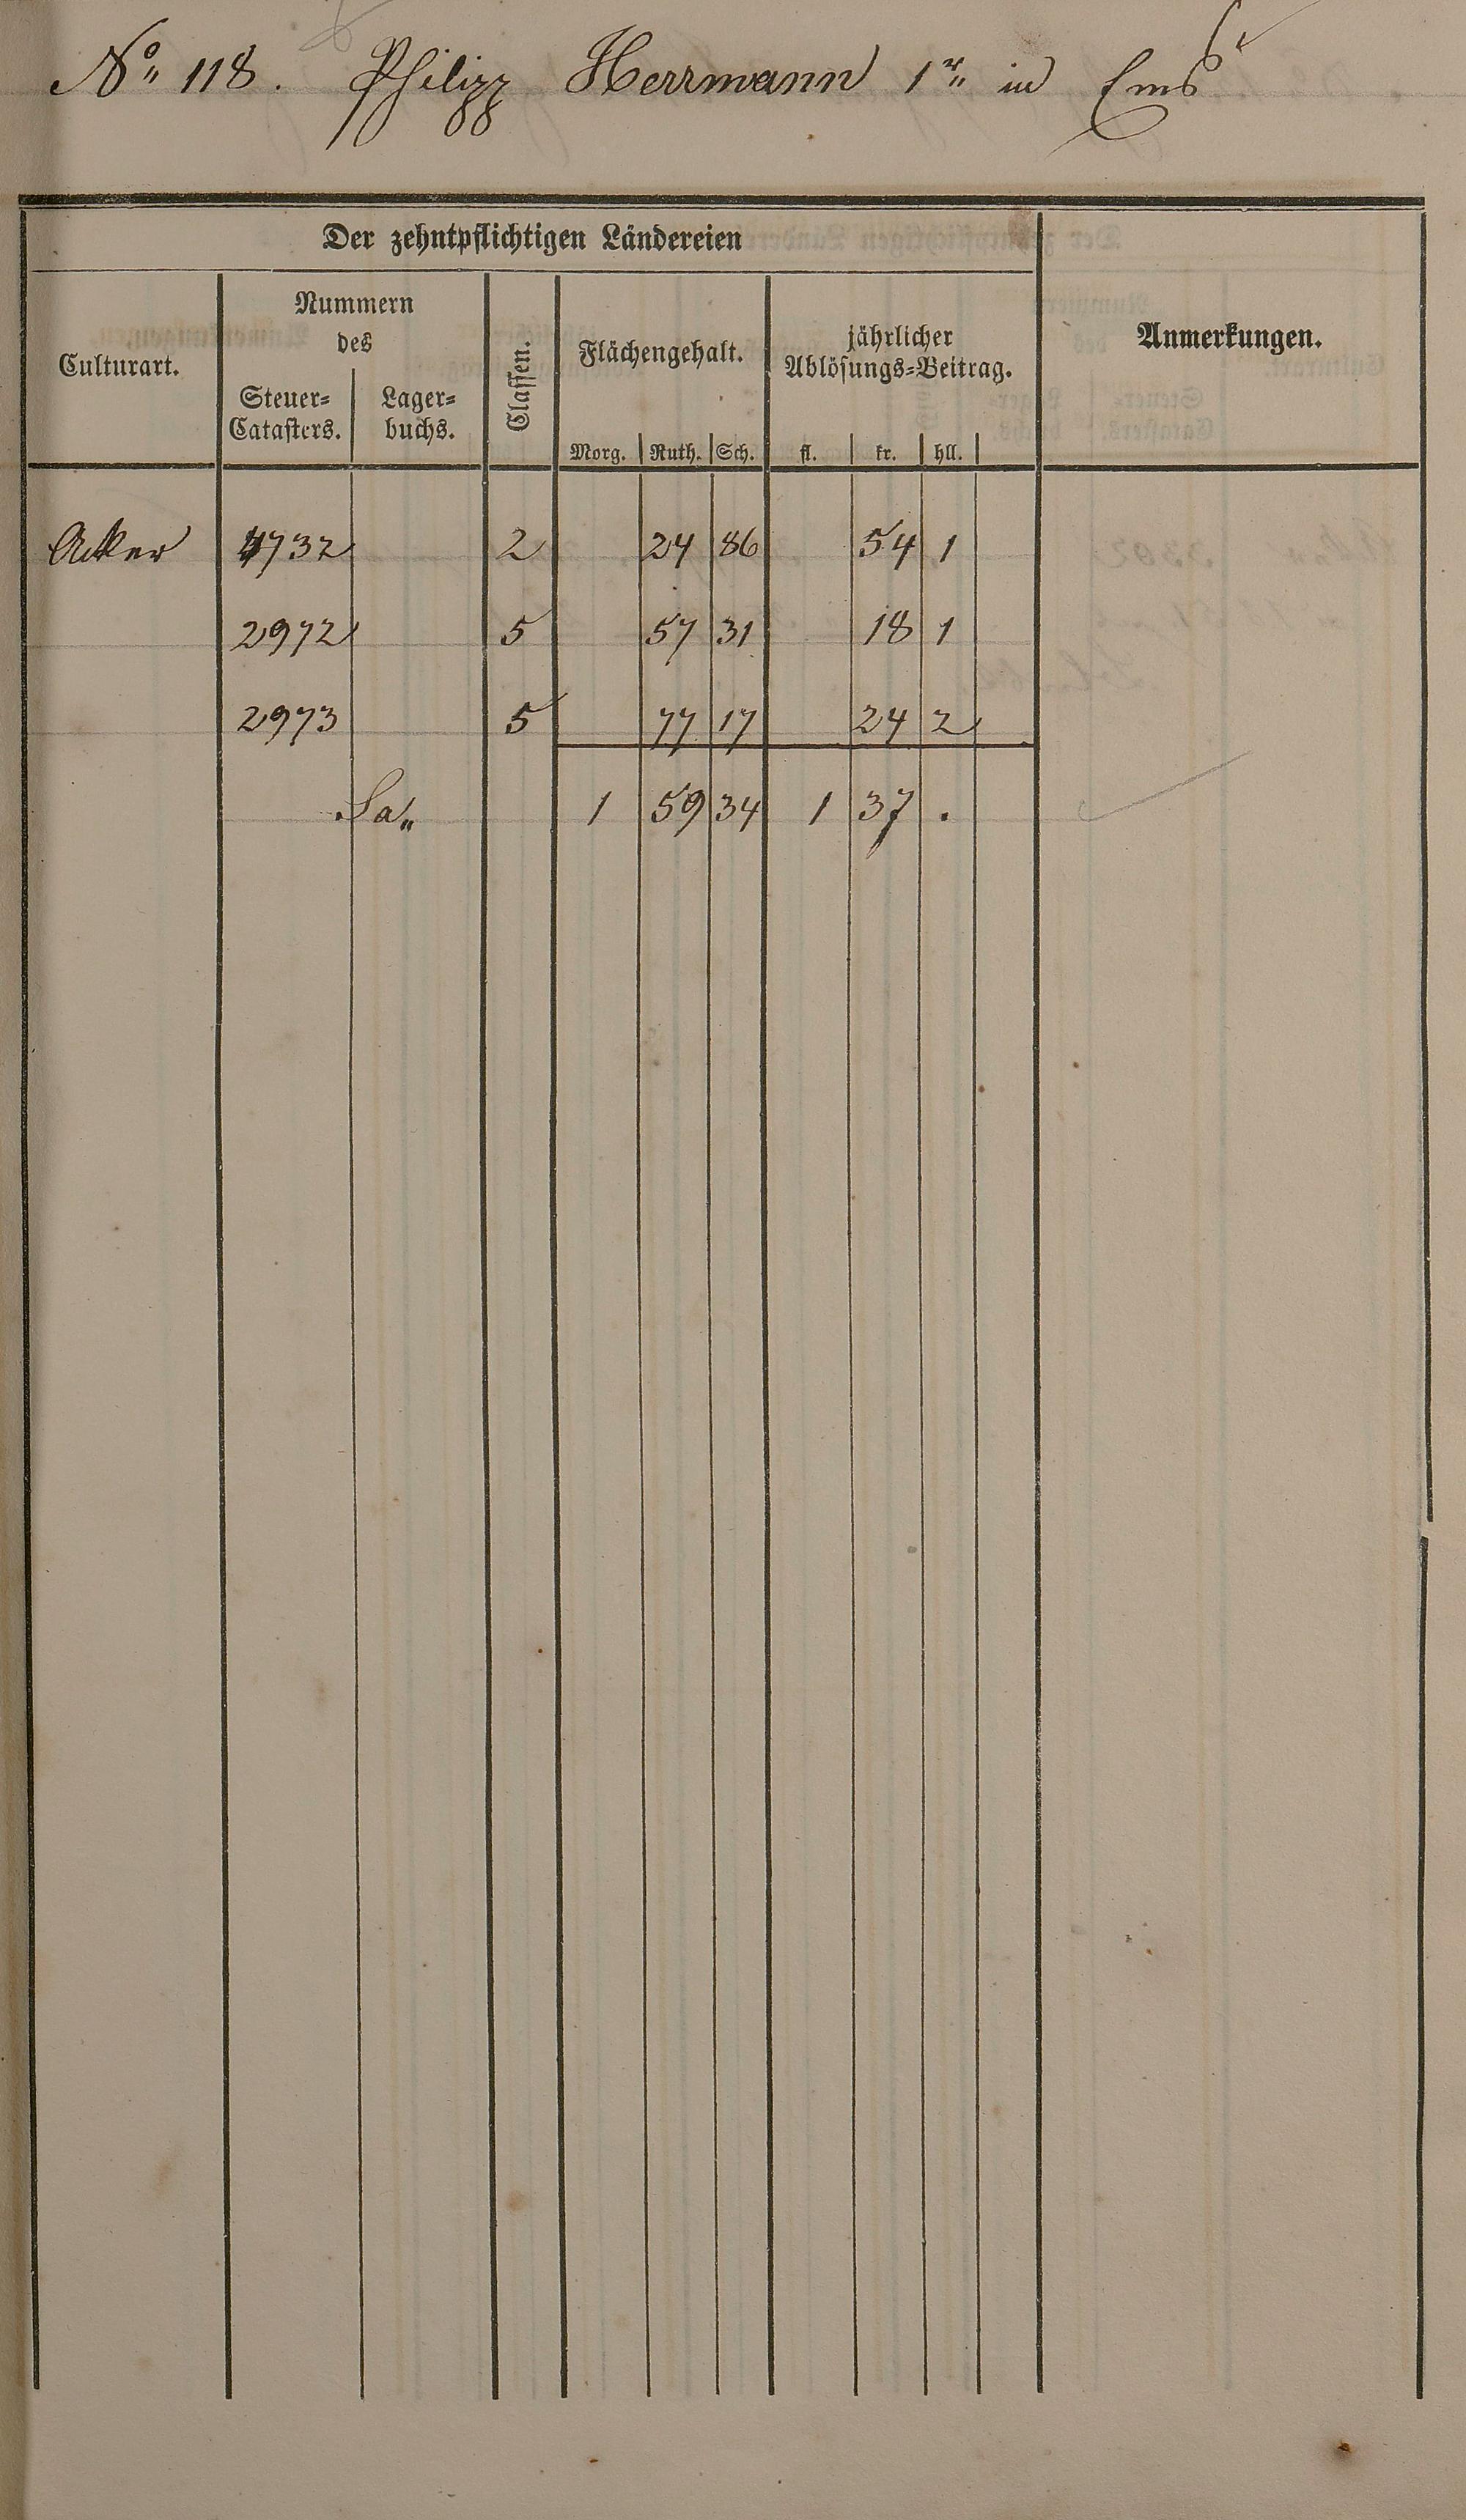 No 118. Philipp Herrmann 1r in Ems
Der zehntpflichtigen Ländereien
Culturart.
Nummern
des
Steuer-
Catasters.
Lager-
buchs.
Classen.
Flächengehalt.
Morg. Ruth. Sch.
jährlicher
Ablösungs-Beitrag.
fl. kr. hll.
Anmerkungen.
Acker 4732 2 24 86 54 1
2972 5 57 31 18 1
2973 5 77 17 24 2
Sa 1 59 34 1 37 .